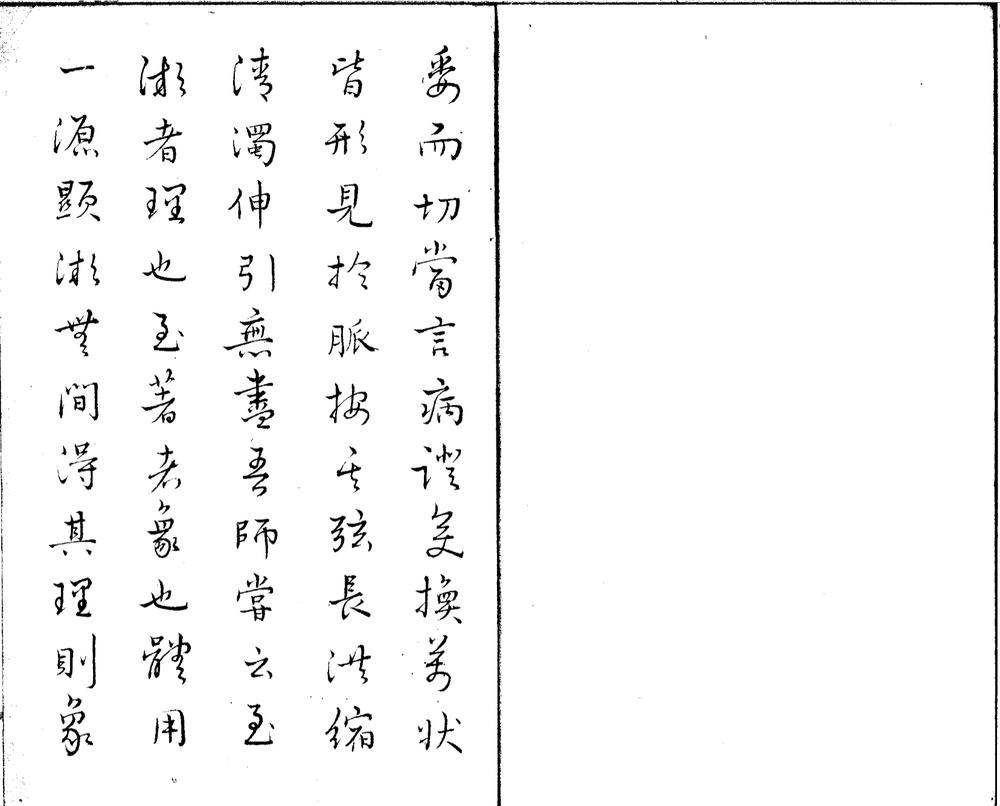 委而切當言病證变換萬状
皆形見於脈按其弦長洪縮
清濁伸引無盡吾師嘗云至
微者理也至著者象也體用
一源顯微無間得其理則象